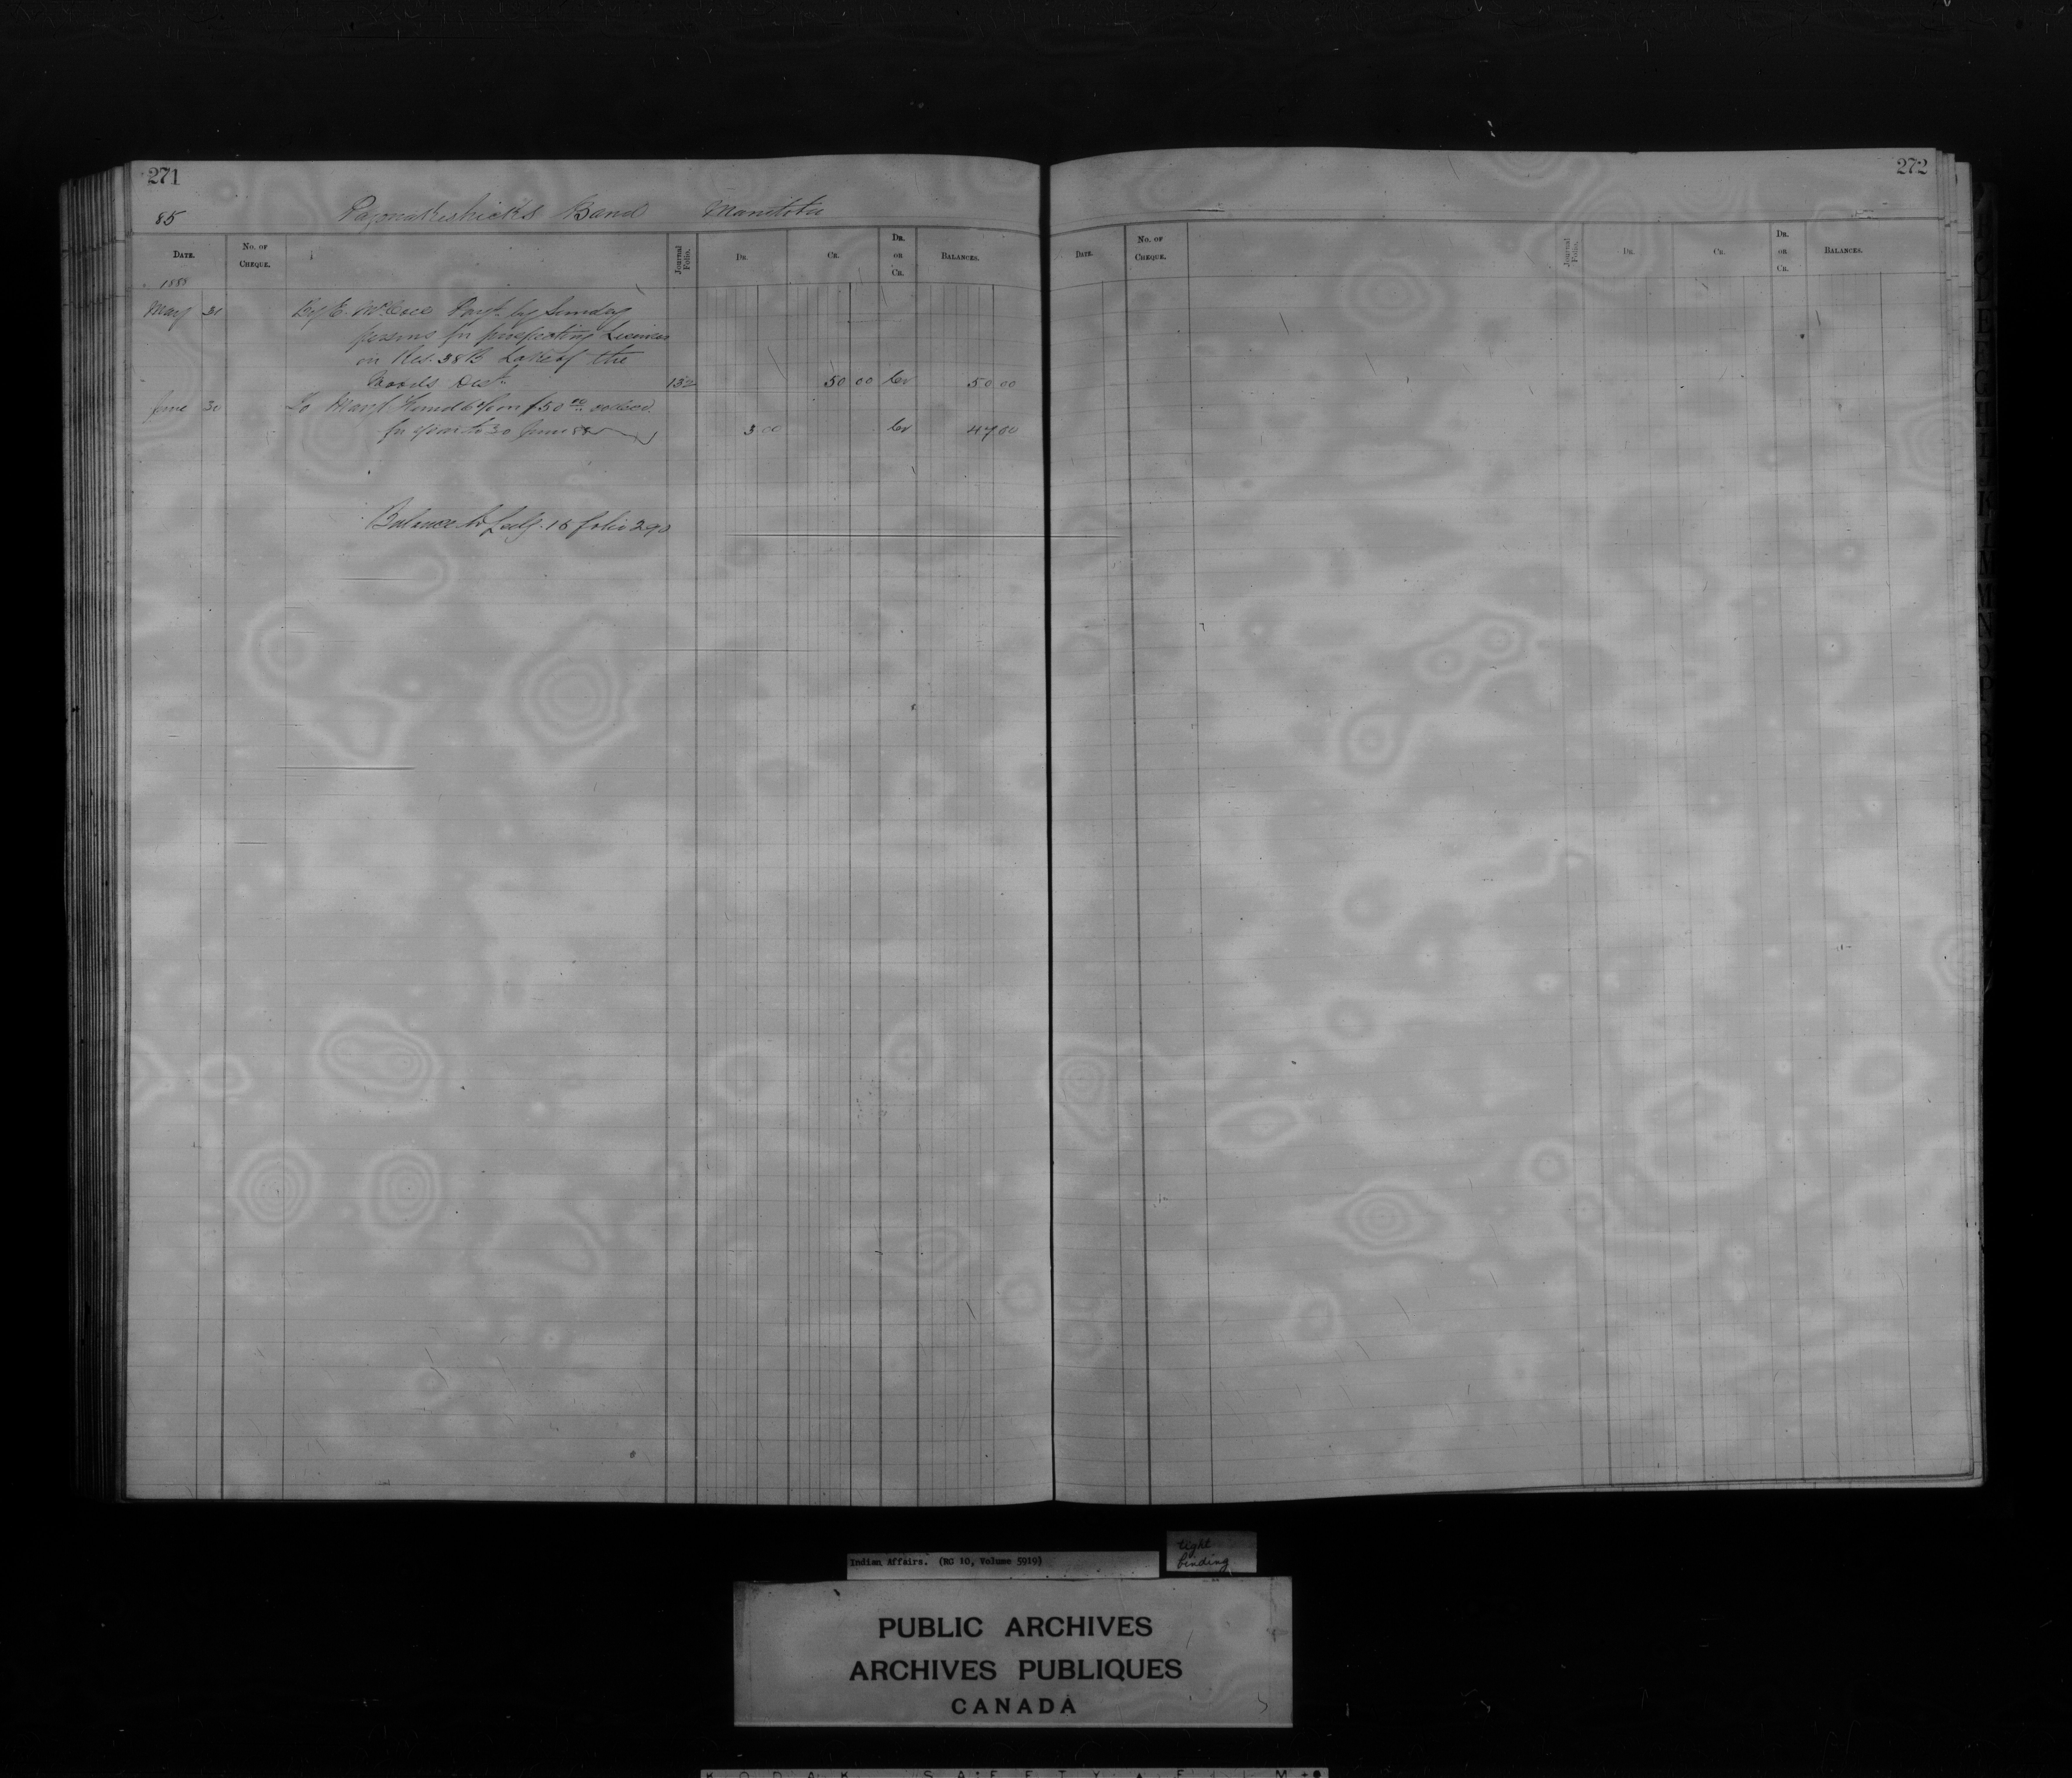 271
85 Pagonakeshicks Band Manitoba
DATE. No. OF CHEQUE. Journal Folio. DR. CR. DR. OR CR. BALANCES.
1888
May 31 By E. McColl Payt. by Sunday
persons for prospecting Licenses
on Res. 38B Lake of the
Woods Dist. 132 50 00 Cr 50 00
June 30 To Man'f Fund 6% on $50.00 collecd.
for year to 30 June 88 3 00 Cr 47 00
Balance to Ledg. 15 folio 290
272
DATE. No. OF CHEQUE. Journal Folio. DR. CR. DR. OR CR. BALANCES.
Indian Affairs. (RG 10, Volume 5919)
tight
binding
PUBLIC ARCHIVES
ARCHIVES PUBLIQUES
CANADA
KODAK SAFETY FILM